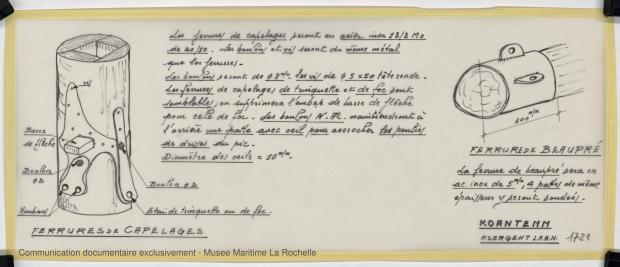 Les ferrures de capelages seront en acier inox 18/8 Mo
de 20/10. Les boulons et vis seront du même métal
que les ferrures.
Les boulons seront de φ 8 m/m. les vis de φ 5 x 50 tête ronde.
Les ferrures de capelages de trinquette et de foc sont
semblables, on supprimera l'embase de basse de flèche
pour celle de foc. Les boulons maintiendront à
l'arrière une patte avec œil pour accrocher les poulies
de drisses du pic.
Diamètre des œils = 10 m/m.
vis
Basse
de flèche
Boulon
φ 8
Haubans
Boulon φ 8
Etai de trinquette ou de foc.
FERRURES DE CAPELAGES
200 m/m
FERRURE DE BEAUPRÉ
La ferrure de beaupré sera en
ac. inox de 5 m/m, 4 pattes de même
épaisseur y seront soudées.
KOANTENN
F. LERGENT L.F.B.N. 1728
Communication documentaire exclusivement - Musee Maritime La Rochelle